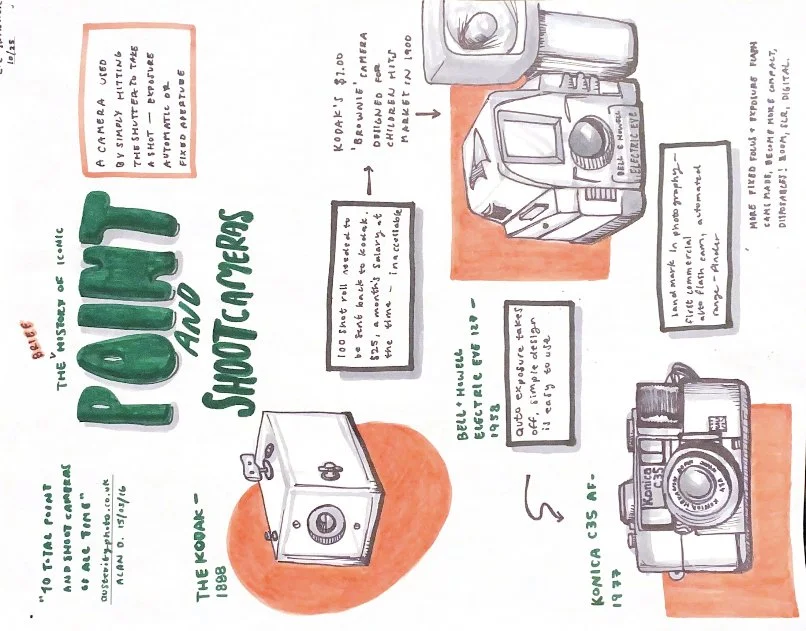 "10 TOTAL POINT
AND SHOOT CAMERAS
OF ALL TIME"
austerityphoto.co.uk
ALAN D. 15/03/16
BRIEF
THE HISTORY OF ICONIC
POINT
AND
SHOOT CAMERAS
A CAMERA USED
BY SIMPLY HITTING
THE SHUTTER TO TAKE
A SHOT — EXPOSURE
AUTOMATIC OR
FIXED APERTURE
10/25
THE KODAK —
1888
100 shot roll needed to
be sent back to Kodak.
$25, a month's salary at
the time — inaccessible
KODAK'S $1.00
'BROWNIE' CAMERA
DESIGNED FOR
CHILDREN HITS
MARKET IN 1900
BELL + HOWELL
ELECTRIC EYE 127 —
1958
auto exposure takes
off, simple design
is easy to use
BELL & HOWELL
ELECTRIC EYE
KONICA C35 AF —
1977
Konica
C35
Landmark in photography —
first commercial
auto flash cam, automated
range-finder
MORE FIXED FOCUS + EXPOSURE FLASH
CAMS MADE, BECOME MORE COMPACT,
DISPOSABLES! ZOOM, SLR, DIGITAL.